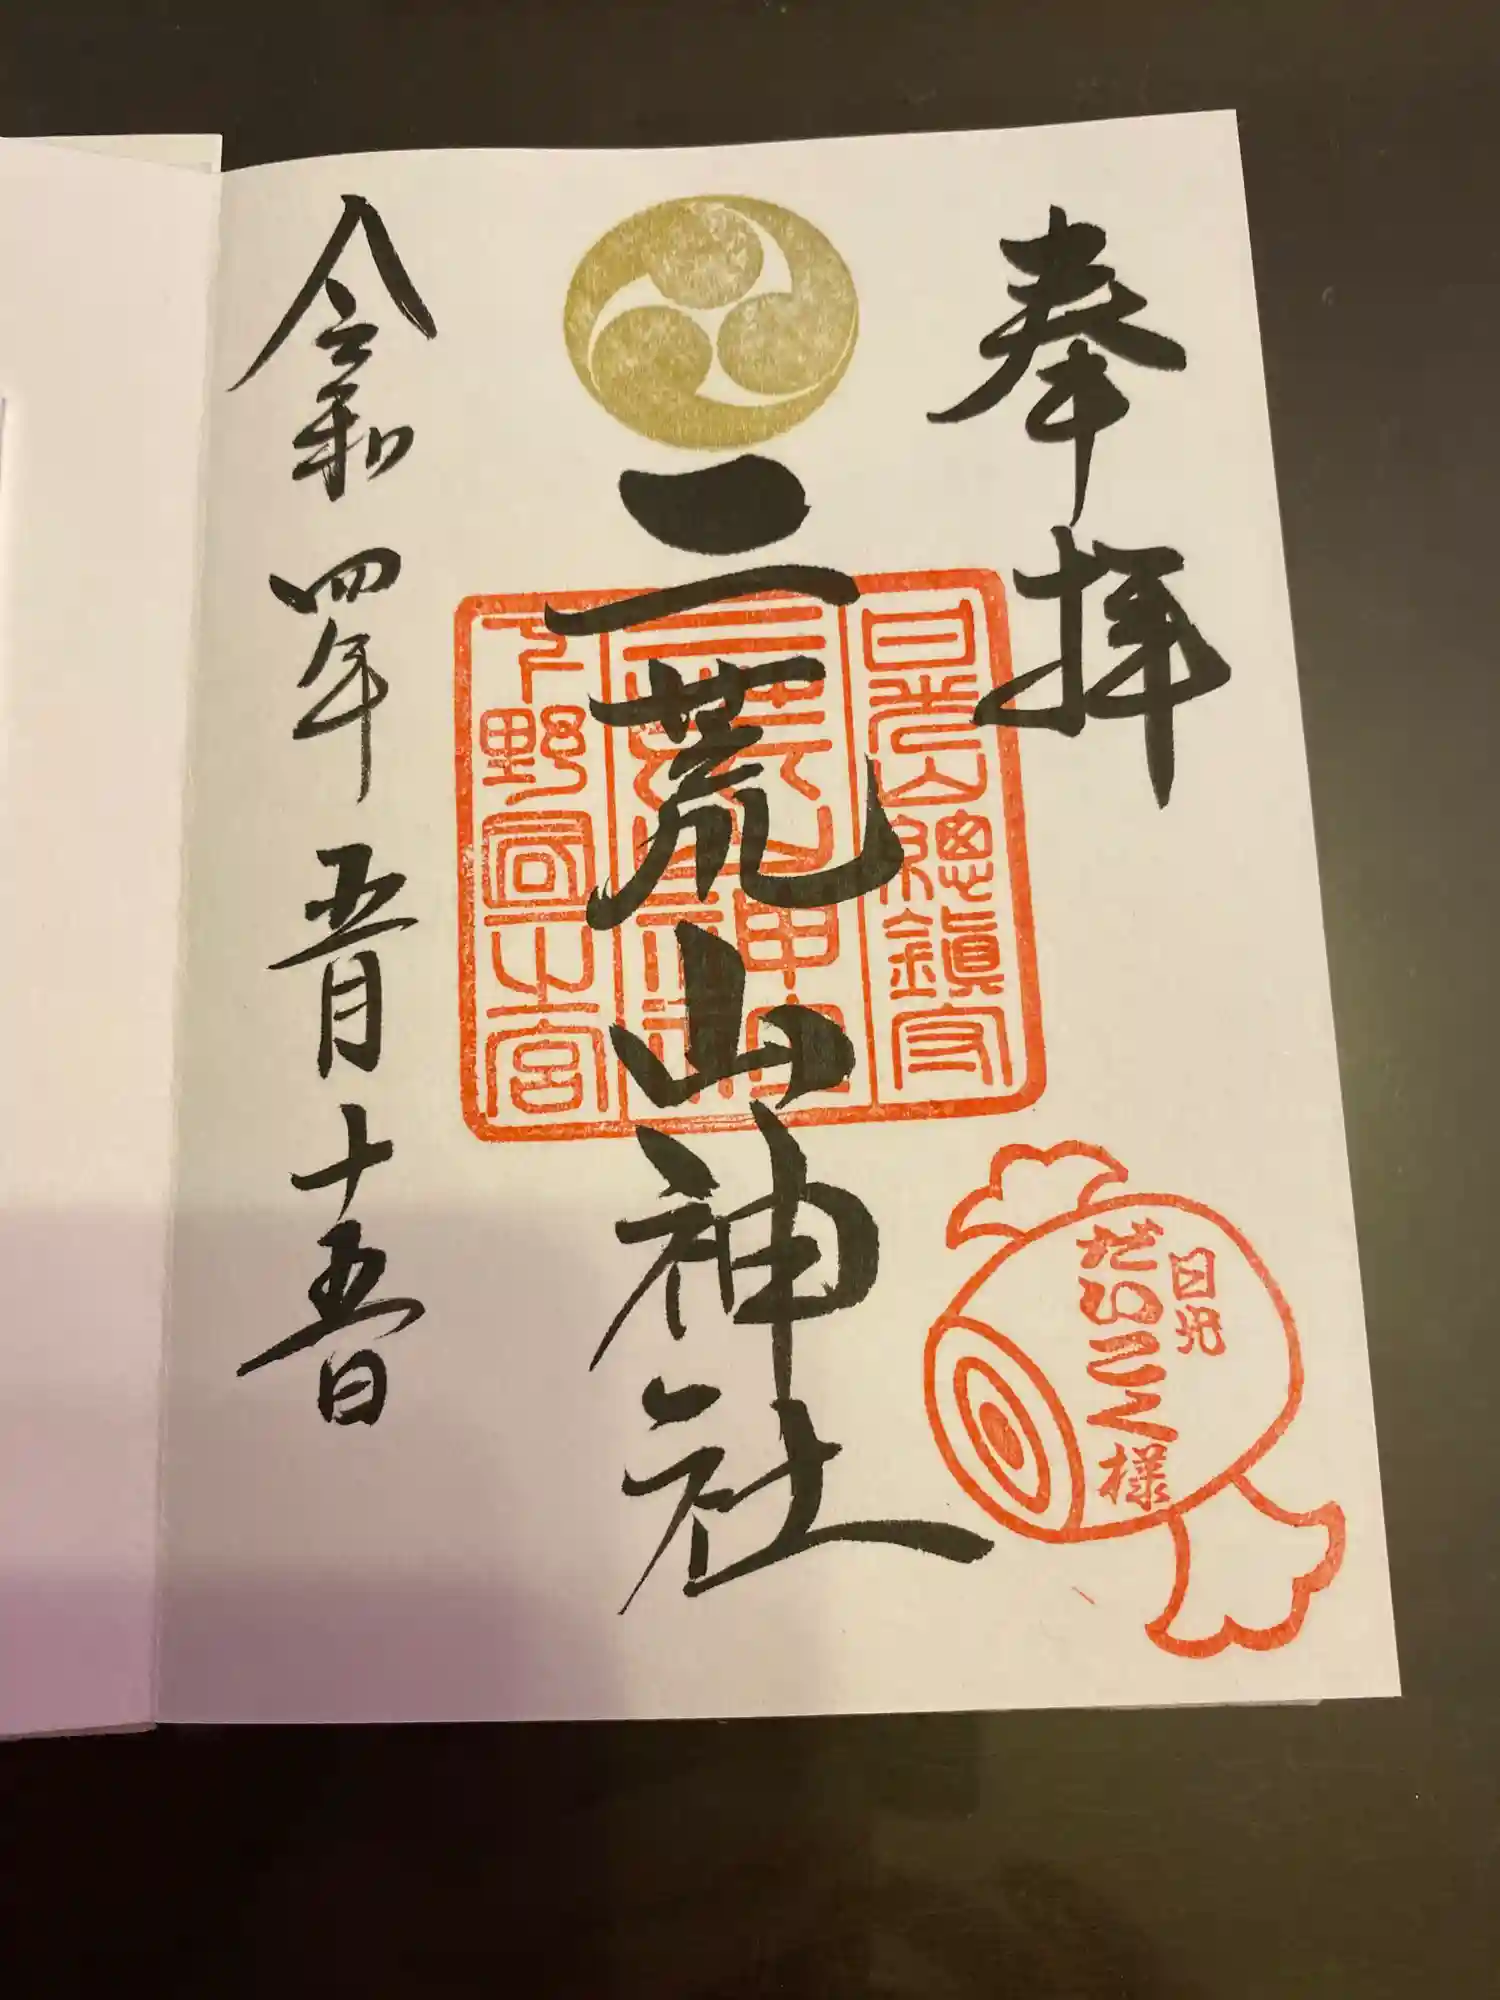 奉拝
日光山總鎮守
二荒山神社
下野國一宮
令和四年五月十五日
日光
だいこく様